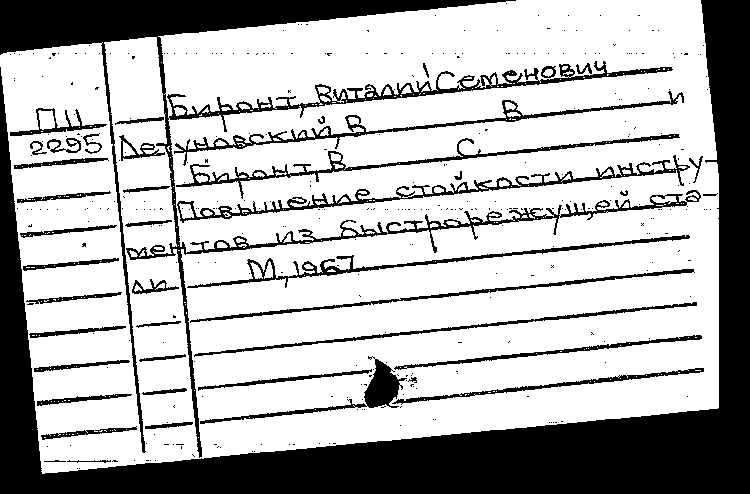 Биронт, Виталий Семенович
П11
2295 Летуновский, В В и
Биронт, В С
Повышение стойкости инстру-
ментов из быстрорежущей ста-
ли М, 1967